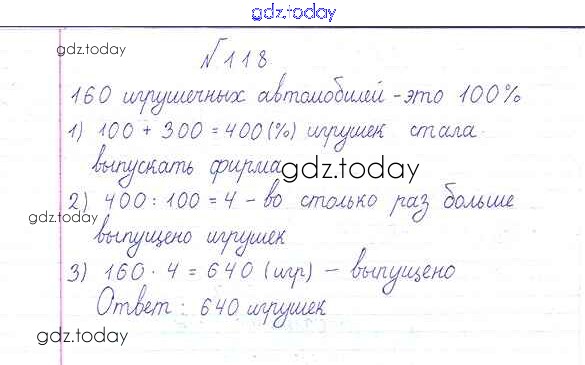 gdz.today
gdz.today
№118
160 игрушечных автомобилей - это 100%
1) 100 + 300 = 400 (%) игрушек стала
выпускать фирма
gdz.today
2) 400 : 100 = 4 - во столько раз больше
gdz.today
выпущено игрушек
3) 160 · 4 = 640 (игр) - выпущено
Ответ: 640 игрушек
gdz.today
gdz.today